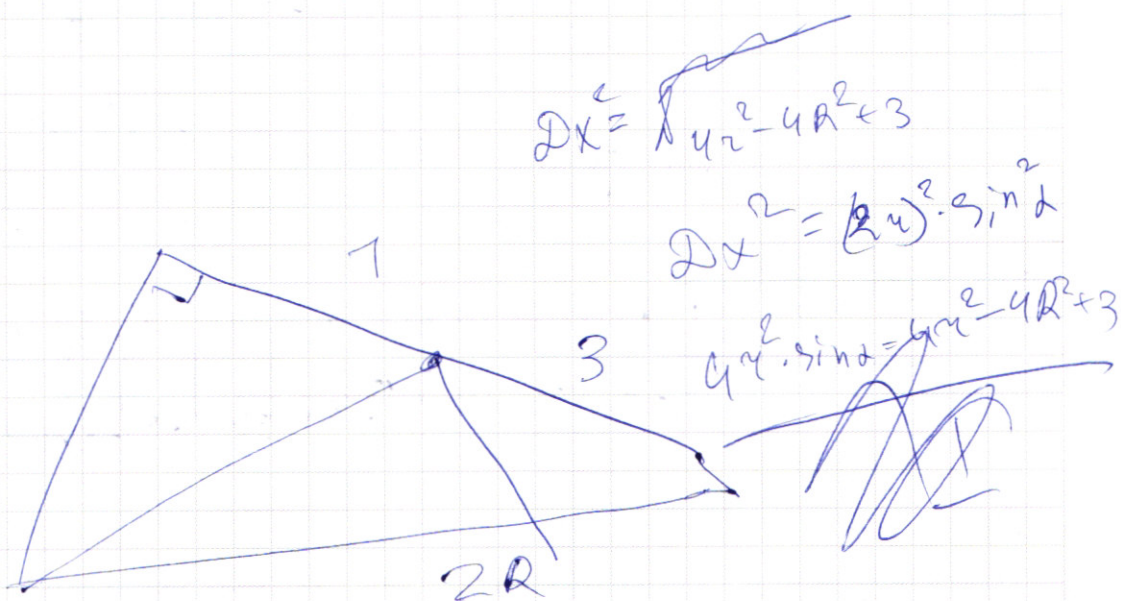 Dx² = 4r² - 4R² + 3
Dx² = (2r)² · sin²α
4r² · sinα = 4r² - 4R² + 3
1
3
2R